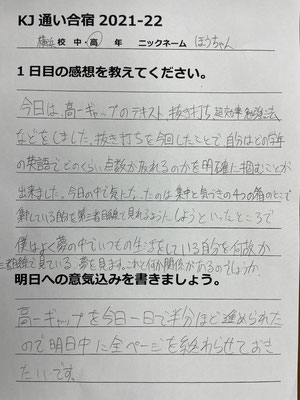 KJ 通い合宿 2021-22
横浜 校 中・高 年 ニックネーム ほうちゃん
1日目の感想を教えてください。
今日は、高一ギャップのテキスト、抜き打ち、超効率勉強法
などをしました。抜き打ちを今回したことで、自分はどの学年
の英語でどのくらい点数が取れるのかを明確に掴むことが
出来ました。今日の中で気になったのは集中と気づきの4つの箱のところで
射している的を第三者目線で見れるようにしようといったところで
僕はよく夢の中でいつもの生活をしている自分を何故か
三者目線で見ている夢を見ます。これと何か関係があるのでしょうか。
明日への意気込みを書きましょう。
高一ギャップを今日一日で半分ほど進められた
ので明日中に全ページを終わらせておき
たいです。